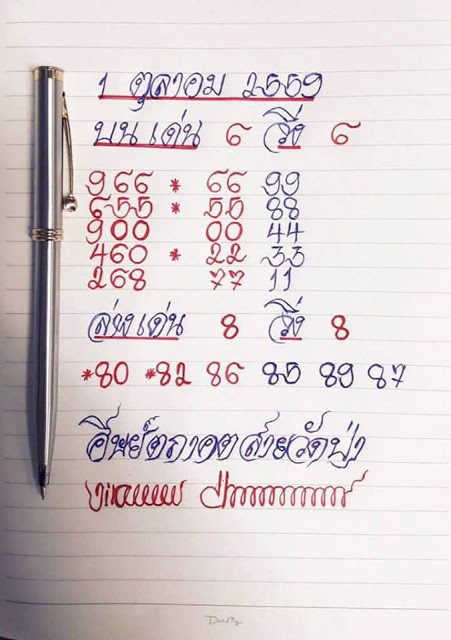 1 ตุลาคม 2559
บน เด่น 6 วิ่ง 6
966 * 66 99
655 * 55 88
900 00 44
460 * 22 33
268 77 11
ล่างเด่น 8 วิ่ง 8
*80 *82 86 85 89 87
ศิษย์ตถาคตสายวัดป่า